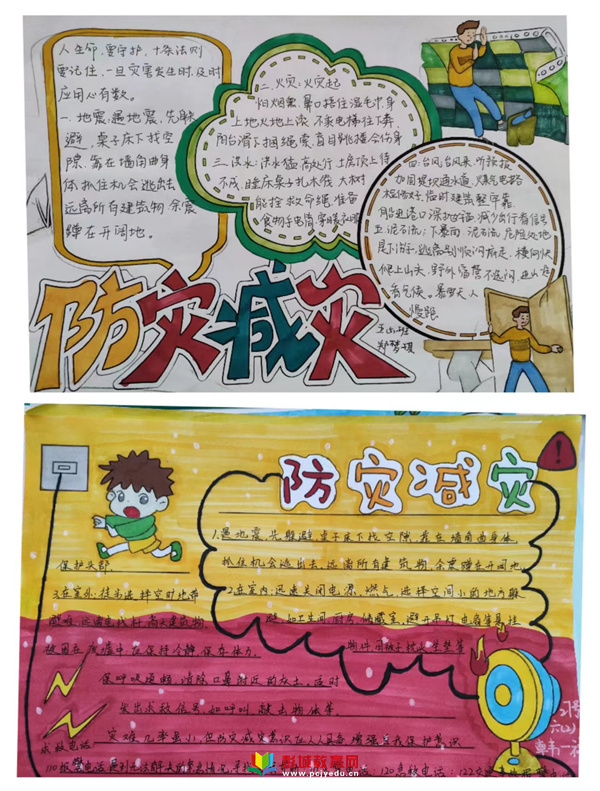 人生命,要守护,十条法则
要记住,一旦灾害发生时,及时
应用心有数。
一、地震:遇地震,先躲
避,桌子床下找空
隙,靠在墙角曲身
体,抓住机会逃出去
远离所有建筑物,余震
蹲在开阔地。
二、火灾:火灾起
怕烟熏,鼻口捂住湿毛巾,身
上地火地上滚,不乘电梯往下奔,
阳台滑下捆绳索,盲目跳楼会伤身
三、洪水:洪水猛高处行,土房顶上待
不成,睡床桌子扎木筏,大树
能拴救命绳,准备
食物手电筒,穿暖衣服
四:台风:台风来听预报
加固堤坝通水道,煤气电路
检修好,临时建筑整牢靠
船进港口深抛锚,减少出行看信号
五、泥石流:下暴雨,泥石流,危险处地
是下游,逃离别顺沟底走,横向快
爬上山头,野外宿营不选沟,进山
看气候。
防灾减灾
防灾减灾
1.遇地震,先躲避,桌子床下找空隙,靠在墙角曲身体,
抓住机会逃出去,远离所有建筑物,余震蹲在开阔地,
保护头部.
3.在室外,往
远离电线杆,
2.在室内,迅速关闭电源、燃气,选择空间小的地方躲
避,如卫生间、厨房、储藏室,避开吊灯、电扇等悬挂
物件,用被子枕头
被困在废墟中,在保持冷静,保存体力.
保呼吸顺畅,清除口鼻附近的灰土,应时
发出求救信号,如呼叫,敲击物体等.
灾难几率虽小,但防灾减灾意识在人人具备,增强自我保护意识
求救电话
彩城教育网
www.pcjyedu.cn